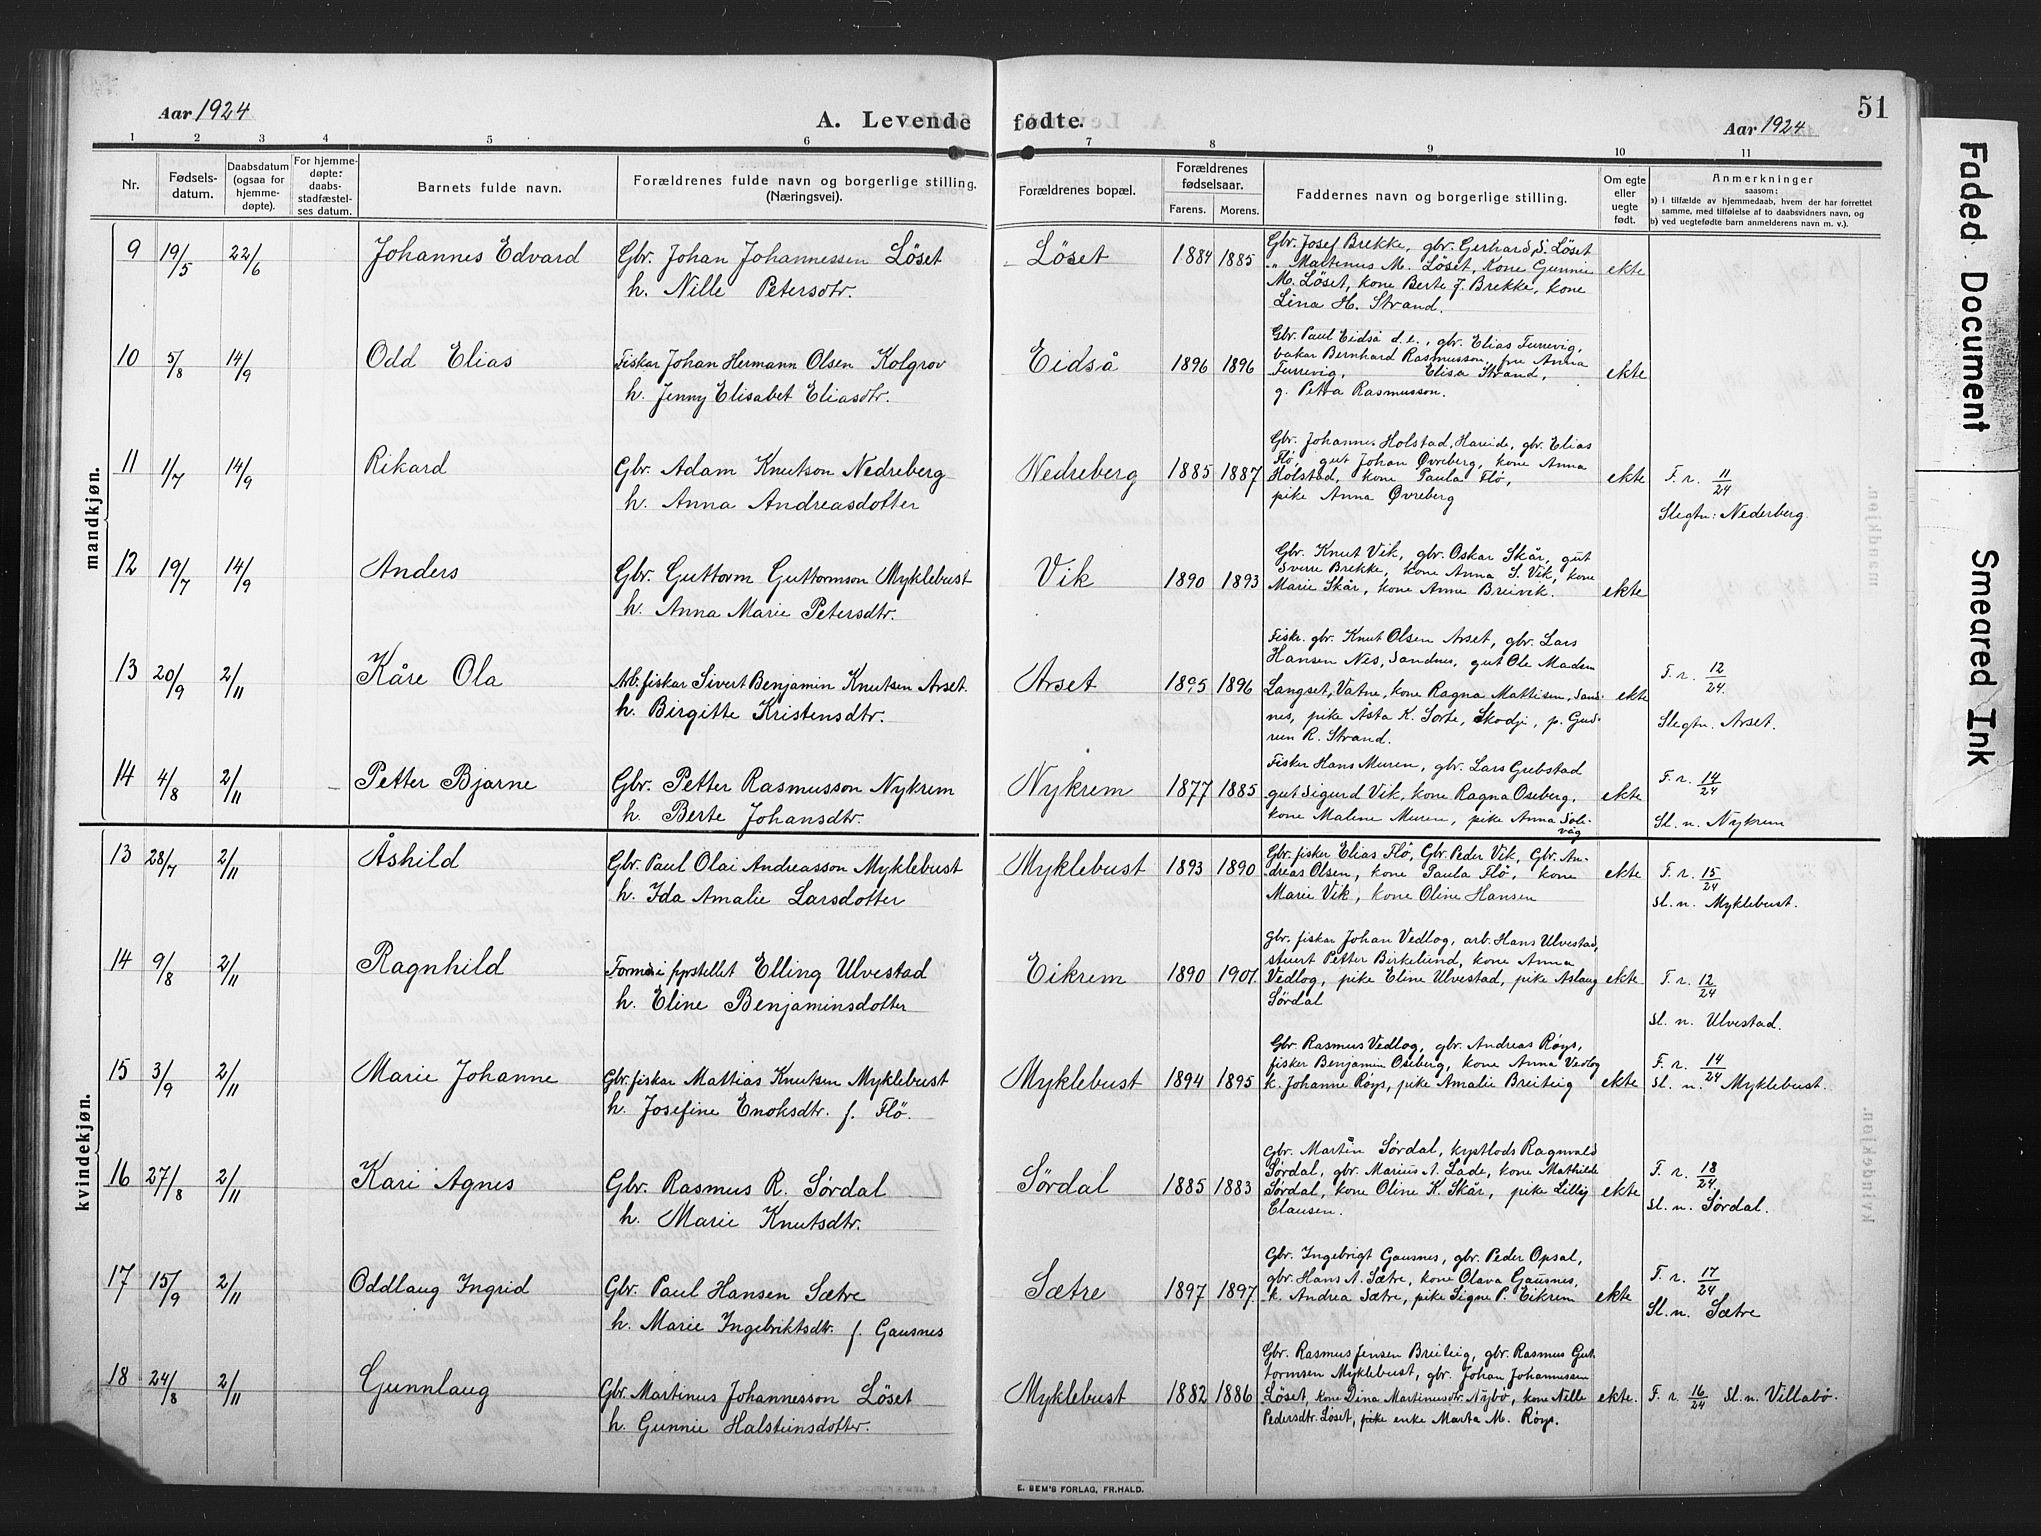 Aar 1924
A. Levende fødte.
Aar 1924
51
1 2 3 4 5 6 7 8 9 10 11
Nr.
Fødsels-
datum.
Daabsdatum
(ogsaa for
hjemme-
døpte).
For hjemme-
døpte:
daabs-
stadfæstel-
ses datum.
Barnets fulde navn.
Forældrenes fulde navn og borgerlige stilling.
(Næringsvei).
Forældrenes bopæl.
Forældrenes
fødselsaar.
Farens. Morens.
Faddernes navn og borgerlige stilling.
Om egte
eller
uegte
født.
Anmerkninger
saasom:
a) i tilfælde av hjemmedaab, hvem der har forrettet
samme, med tilføielse af to daabsvidners navn, og
b) ved uegtefødte barn anmelderens navn m. v.).
mandkjøn.
9 19/5 22/6 Johannes Edvard
Gbr. Johan Johannessen Løset
h. Nille Petersdtr.
Løset 1884 1885
Gbr. Josef Brekke, gbr. Gerhard S. Løset
" Martinus M. Løset, Kone Gunnie
M. Løset, kone Berte J. Brekke, kone
Lina H. Strand.
ekte
10 5/8 14/9 Odd Elias
Fiskar Johan Hermann Olsen Kolgrov
h. Jenny Elisabet Eliasdtr.
Eidså 1896 1896
Gbr. Paul Eidså d.e., gbr. Elias Furrevig,
bakar Bernhard Rasmusson, fru Anna
Furrevig, Elisa Strand,
g. Petra Rasmusson.
ekte
11 1/7 14/9 Rikard
Gbr. Adam Knutson Nedreberg
h. Anna Andreasdotter
Nedreberg 1885 1887
Gbr. Johannes Holstad, Hareide, gbr. Elias
Flø, gut Johan Øvreberg, kone Anna
Holstad, kone Paula Flø,
pike Anna Øvreberg
ekte
F. r. 11/24
Slegtn: Nederberg.
12 19/7 14/9 Anders
Gbr. Guttorm Guttormson Myklebust
h. Anna Marie Petersdtr.
Vik 1890 1893
Gbr. Knut Vik, gbr. Oskar Skår, gut
Sverre Brekke, kone Anna S. Vik, kone
Marie Skår, kone Anne Breivik.
ekte
13 20/9 2/11 Kåre Ola
Arb. fiskar Sivert Benjamin Knutsen Arset.
h. Birgitte Kristensdtr.
Arset 1895 1896
Fisk. gbr. Knut Olsen Arset, gbr. Lars
Hansen Nes, Sandnes, gut Ole Madsen
Langset, Vatne, kone Ragna Mattisen, Sand-
nes, pike Åsta K. Sorte, Skodje, p. Gud-
run R. Strand.
ekte
F. r. 12/24.
Slegtn. Arset.
14 4/8 2/11 Petter Bjarne
Gbr. Petter Rasmusson Nykrem
h. Berte Johansdtr.
Nykrem 1877 1885
Fisker Hans Muren, gbr. Lars Grebstad
gut Sigurd Vik, kone Ragna Oseberg,
kone Malene Muren, pike Anna Sole-
våg
ekte
F. r. 14/24
Sl. n. Nykrem
kvindekjøn.
13 28/7 2/11 Åshild
Gbr. Paul Olai Andreasson Myklebust
h. Ida Amalie Larsdotter
Myklebust 1893 1890
Gbr. fisker Elias Flø, Gbr. Peder Vik, Gbr. An-
dreas Olsen, kone Paula Flø, kone
Marie Vik, kone Oline Hansen
ekte
F. r. 15/24
Sl. n. Myklebust.
14 9/8 2/11 Ragnhild
Elling Ulvestad
h. Eline Benjaminsdotter
Eikrem 1890 1901.
Gbr. fiskar Johan Vedlog, arb. Hans Ulvestad,
stuert Petter Birkelund, kone Anna
Vedlog, pike Eline Ulvestad, pike Aslaug
Sørdal
ekte
F. r. 12/24
Sl. n. Ulvestad.
15 3/9 2/11 Marie Johanne
Gbr. fiskar Mattias Knutsen Myklebust
h. Josefine Enoksdtr. f. Flø.
Myklebust 1894 1895
Gbr. Rasmus Vedlog, gbr. Andreas Røys,
fisker Benjamin Oseberg, kone Anna Vedlog
k. Johanne Røys, pike Amalie Breiteig
ekte
F. r. 14/24
Sl. n. Myklebust.
16 27/8 2/11 Kari Agnes
Gbr. Rasmus R. Sørdal
h. Marie Knutsdtr.
Sørdal 1885 1883
Gbr. Martin Sørdal, kystlods Ragnvald
Sørdal, gbr. Marius A. Lade, kone Mathilde
Sørdal, kone Oline K. Skår, pike Lilly
Clausen.
ekte
F. r. 18/24.
Sl. n. Sørdal.
17 15/9 2/11 Oddlaug Ingrid
Gbr. Paul Hansen Sætre
h. Marie Ingebriktsdtr. f. Gausnes
Sætre 1897 1897
Gbr. Ingebrigt Gausnes, gbr. Peder Opsal,
gbr. Hans A. Sætre, kone Olava Gausnes,
k. Andrea Sætre, pike Signe P. Eikrem
ekte
F. r. 17/24
Sl. n. Sætre
18 24/8 2/11 Gunnlaug
Gbr. Martinus Johannesson Løset
h. Gunnie Halsteinsdotter.
Myklebust 1882 1886
Gbr. Rasmus Jensen Breiteig, gbr. Rasmus Gut-
tormsen Myklebust, gbr. Johan Johannesen
Løset, kone Dina Martinusdtr. Nybø, kone Nille
Pedersdtr. Løset, pike enke Marta M. Røys.
ekte.
F. r. 16/24 Sl. n. Villabø.
E. SEM'S FORLAG, FR.HALD.
Faded Document
Smeared Ink